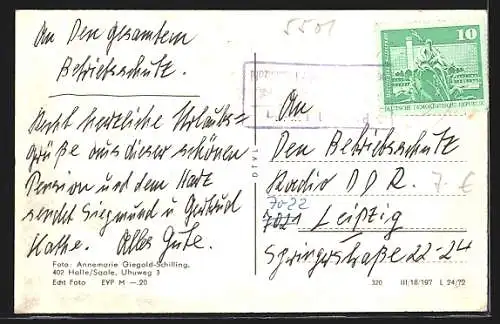 An den gesamten
Betriebsschutz.
Recht herzliche Urlaubs=
grüße aus dieser schönen
Pension und dem Harz
sendet Siegmund u. Gertrud
Kothe. Alles Gute.
Foto: Annemarie Giegold-Schilling,
402 Halle/Saale, Uhuweg 3
Echt Foto EVP M —.20
5501
10
DEUTSCHE DEMOKRATISCHE REPUBLIK
An
Den Betriebsschutz
Radio DDR.
7 €
7022
7021 Leipzig
Springerstraße 22-24
320 III/18/197 L 24/72